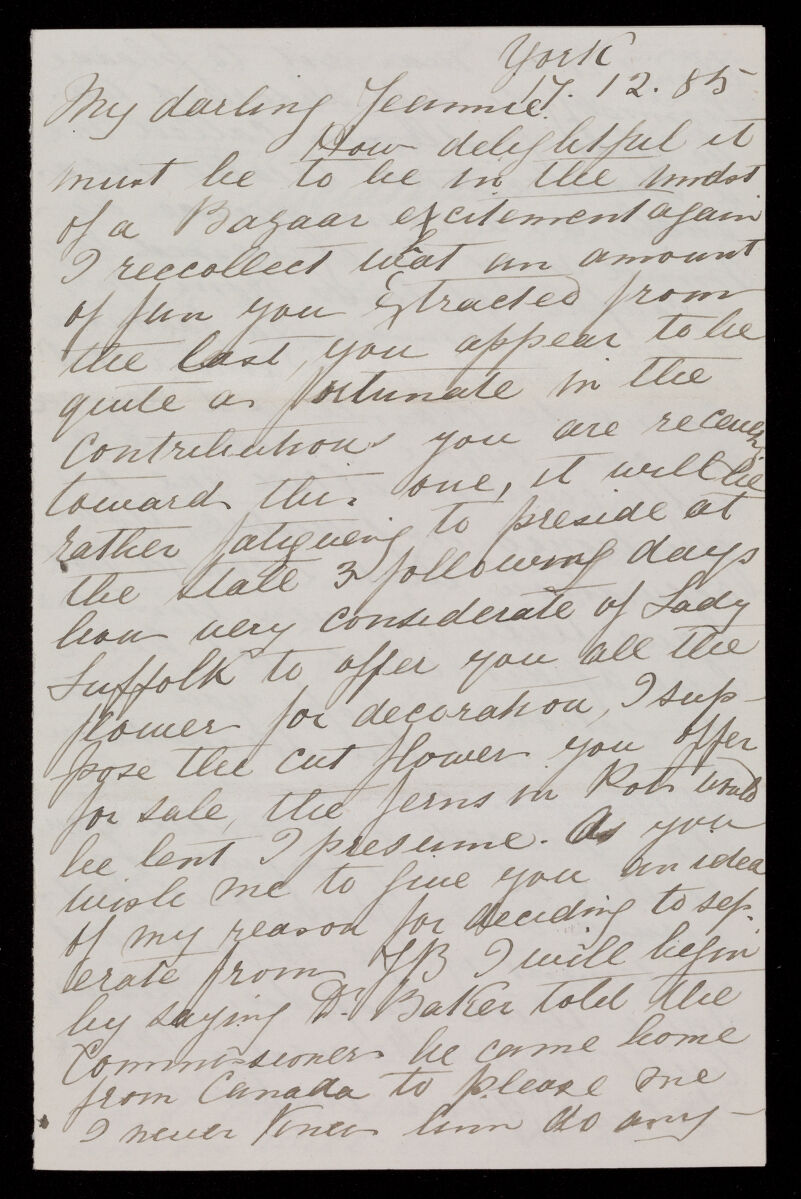 York
17. 12. 85
My darling Jeannie.
How delightful it
must be to be in the midst
of a Bazaar excitement again
I reccollect what an amount
of fun you extracted from
the last, you appear to be
quite as fortunate in the
contributions you are receiving
towards this one, it will be
rather fatigueing to preside at
the stall 3 following days
how very considerate of Lady
Suffolk to offer you all the
flowers for decoration, I sup-
pose the cut flowers you offer
for sale, the ferns in Pots would
be lent I presume. As you
wish me to give you an idea
of my reason for deciding to sep-
erate from JB I will begin
by saying Dr. Baker told the
Commissioners he came home
from Canada to please me
I never knew him do any-